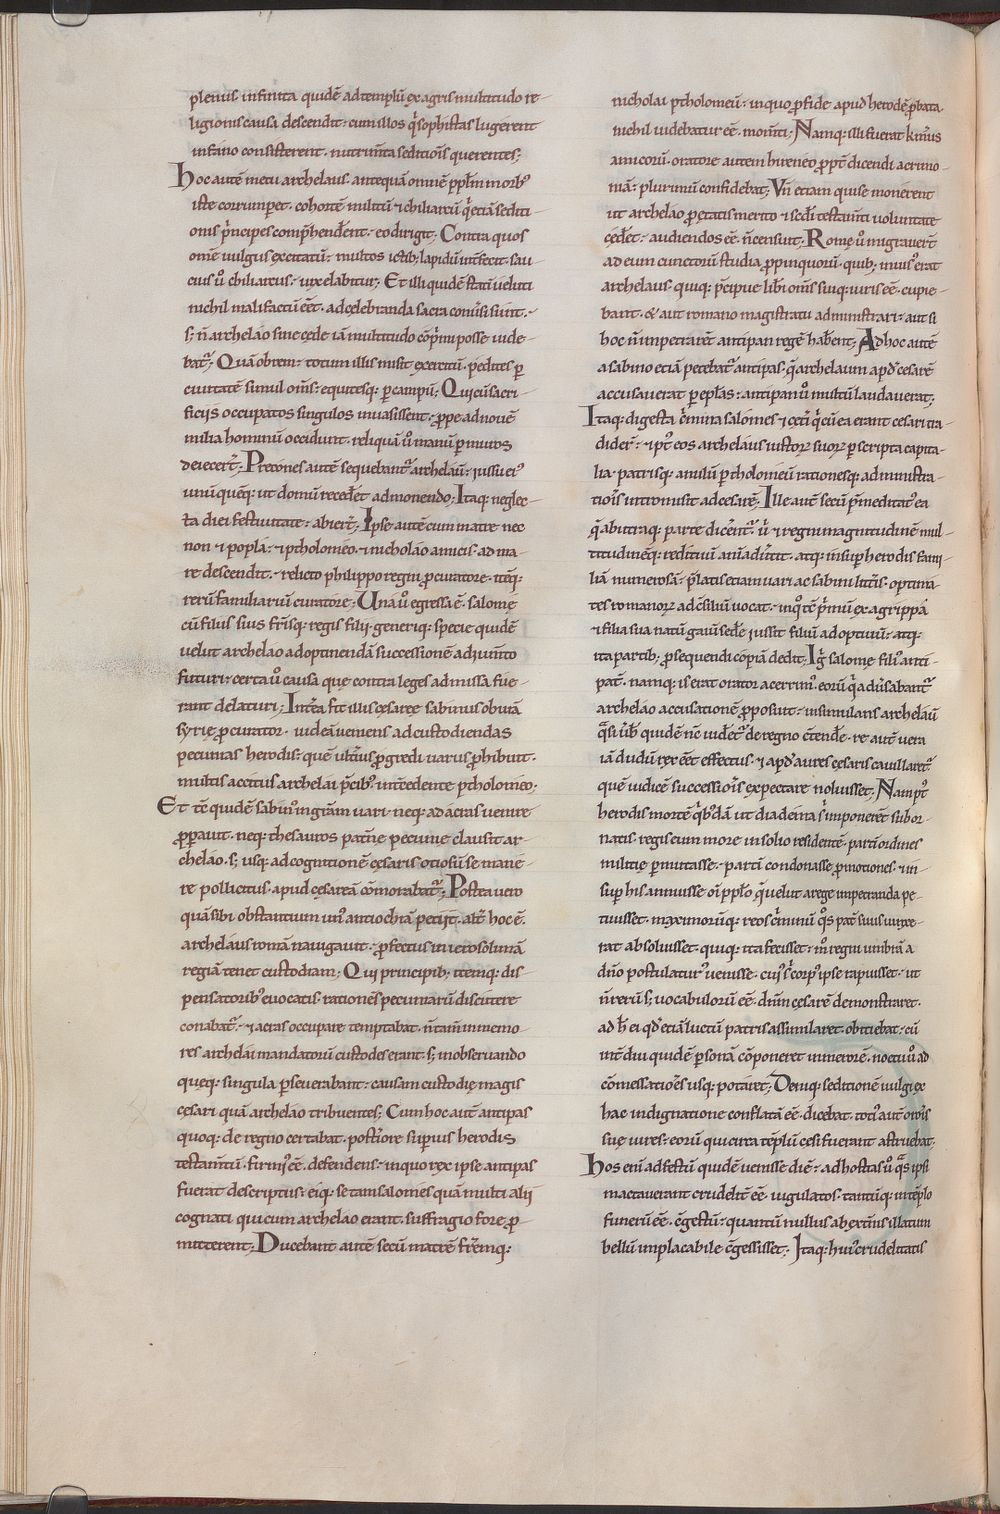 plenus. infinita quidē ad templū ex agris multitudo re-
ligionis causa descendit. cum illos q̇ sophistas lugerent
in fano consisterent. nutrim̄ta seditiōis querentes;
Hoc autē metu archelaus. antequā omnē pp̄lm morbꝰ
iste corrumperet. cohortē militū ⁊ chiliarcū q̇ etiā sediti-
onis p̄ncipes comp̄henderent. eo dirigit; Contra quos
omē uulgus excitatū. multos ictib; lapidū int̄fecit. sau-
cius ů chiliarcus. uix elabitur; Et illi quidē statī ueluti
nichil mali factū eēt. ad celebranda sacra conūsi sunt.
s; n̄ archelao sine cede iā multitudo cōp̄mi posse uide-
bat᷑; Quā obrem. totum illis misit exercitū. pedites ꝑ
ciuitatē simul om̄s. equitesq; ꝑ campū; Qui cū sacri-
ficiis occupatos singulos inuasissent. ꝓpe ad nouē
milia hominū occidunt. reliquā ů manū ꝑ muros
deiecer̄t; Precones autē sequebant᷑ archelaū. iussu eiꝰ
unūquēq; ut domū recederet admonendo; Itaq; neglec-
ta diei festiuitate. abier̄t; Ipse autē cum matre nec
non ⁊ popla. ⁊ ptholomeo. ⁊ nicholao amicis. ad ma-
re descendit. relicto philippo regni ꝓcuratore. itēq;
rerū familiarum curatore; Una ů egressa ē. salome
cū filiis suis fr̄isq; regis filii. generiq; specie quidē
uelut archelao ad optinendā successionē adiumto
futuri. certa ů causa que contra leges admissa fue-
rant delaturi; Int̄ea fit illis cesaree sabinus obuiā
syrie ꝓcurator. iudeā ueniens ad custodiendas
pecunias herodis. quē ult̄ius ꝓgredi uarus ꝓhibuit.
multis accitus archelai p̄cibꝰ. int̄cedente ptholomeo;
Et tc̄ quidē sabinꝰ in gr̄am uari. neq; ad arces uenire
ꝓꝑauit. neq; thesauros pat̄ne pecunie clausit ar-
chelao. s; usq; ad cognitionē cesaris. otiosū se mane-
re pollicitus. apud cesareā cōmorabat᷑; Postea uero
quā sibi obstantium unꝰ antiochiā petiit. alt̄ hoc ē.
archelaus romā nauigauit. ꝓfectus in ierosolimā
regiā tenet custodiam; Qui principib; itemq; dis-
pensatoribꝰ euocatis. rationes pecuniarū discutere
conabat᷑. ⁊ arces occupare temptabat. n̄ tam̄ inmemo-
res archelai mandatorū custodes erant. s; in obseruando
queq; singula ꝑseuerabant. causam custodie magis
cesari quā archelao tribuentes; Cum hoc aut̄ antipas
quoq; de regno certabat. posteriore superius herodis
testam̄tū. firmiꝰ ēē. defendens. in quo rex ipse antipas
fuerat descriptus. eiq; se tam salomes quā multi alii
cognati qui cum archelao erant. suffragio fore ꝓ-
mitterent; Ducebant autē secū matrē fr̄emq;
nicholai ptholomeū. in quo ꝓ fide apud herodē ꝓbata
nichil uidebatur ēē. mom̄ti; Namq; illi fuerat k̄mūs
amicorū. oratore autem hireneo ꝓpt̄ dicendi acrimo-
niā. plurimū confidebat; Vn̄ etiam qui se monerent
ut archelao ꝓ etatis merito ⁊ sedi testam̄ti uoluntate
cederet. audiendos ēē. n̄ censuit; Rome ů migrauer̄t
ad eum cunctorū studia ꝓpinquorū. quib; inuisꝰ erat
archelaus. quiq; p̄cipue lib̄i om̄s suiq; iuris ēē. cupie-
bant. & aut romano magistratu administrari. aut si
hoc n̄ impetrarēt antipan regē hab̄ent; Ad hoc autē
a sabino etiā petebat᷑ antipas. q̇ archelaum apd̄ cesarē
accusauerat ꝑ epl̄as. antipan ů multū laudauerat;
Itaq; digesta c̄mina salomes ⁊ cet̄i q̇ cū ea erant cesari tra-
dider̄t. ⁊ pꝰt eos archelaus iustoꝝ suoꝝ ꝑ scripta capita-
lia. patrisq; anulū ꝑ tholomeū rationesq; administra-
tiōis intromisit ad cesarē; Ille autē secū p̄meditatꝰ ea
q̄ ab utraq; parte dicer̄ent᷑. ů ⁊ regni magnitudinē mul-
titudinēq; redituū anīaduertit. atq; insuꝑ herodis fami-
liā numerosā. p̄latis etiam uari ac sabini litt̄is. optima-
tes romanoꝝ ad c̄siliū uocat. in q̊ tc̄ p̄mū ex agrippa
⁊ filia sua natū gaiū sedere iussit filiū adoptiuū. atq;
ita partib; ꝓsequendi copiā dedit; Ig̊ salome filiꝰ anti-
pat̄. namq; is erat orator acerrimꝰ. eorū q̇ aduersabant᷑
archelao accusationē ꝓposuit. insimulans archelaū
q̄si u̇bis quidē nc̄ uideret᷑ de regno c̄tendere. re aut̄ uera
iā dudū rex eēt effectus. ⁊ apd̄ aures cesaris cauillaret᷑
quē iudicē successiōis expectare noluisset; Nam pꝰt
herodis mortē q̇bꝰdā ut diadema s̊ imponerēt subor-
natis. regis eum more in solio residentē. partī ordines
militie ꝑmutasse. partī condonasse ꝓmotiones. in-
suꝑ his annuisse oī pp̄lo q̄ uelut a rege impetranda pe-
tiuisset. maximorūq; reos c̄minū q̊s pat̄ suus uinxe-
rat absoluisset. quiq; ita fecisset. n̊ regni umbrā a
dn̄o postulaturꝰ uenisse. cuiꝰ s̊ corpꝰ ipse rapuisset. ut
n̄ rerū s; uocabulorū ēē. dnm̄ cesarē demonstraret.
ad h̄ ei qd̄ etiā luctū patris assimilaret. obiciebat. cū
int̄diu quidē ꝑsonā cōponeret in merorē. noctu ů ad
cōmessatiōes usq; potaret; Deniq; seditionē uulgi ex
hac indignatione conflatā ēē. dicebat. totꝰ aut̄ oratiōis
sue uires. eorū qui circa tēplū cesi fuerant astruebat;
Hos enī ad festū quidē uenisse diē. ad hostias ů q̄s ipsi
mactauerant crudelit̄ ēē. iugulatos. tantūq; in tēplo
funerū ēē. c̄gestū. quantū nullus ab ext̄nis illatum
bellū implacabile c̄gessisset; Itaq; huiꝰ crudelitatis